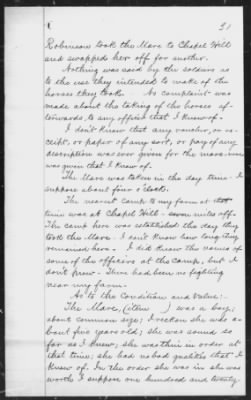 21
Robinson took the Mare to Chapel Hill
and swapped her off for another.
Nothing was said by the soldiers as
to the use they intended to make of the
horses they took. No complaint was
made about the taking of the horses af-
terwards to any officer that I know of.
I don't know that any voucher, or re-
ceipt, or paper of any sort, or pay of any
description was ever given for the mare. none
was given that I know of.
The Mare was taken in the day time - I
suppose about four o'clock.
The nearest camp to my farm at that
time was at Chapel Hill - seven miles off.
The camp here was established the day they
took the Mare. I don't know how long they
remained here. I did know the names of
some of the officers at the camp, but I
don't know - There had been no fighting
near my farm.
As to the Condition and Value:-
The Mare, (item ) was a bay;
about common size; I reckon she was a-
bout five years old; she was sound so
far as I knew; she was thin in order at
that time; she had no bad qualities that I
knew of. In the order she was in she was
worth I suppose one hundred and twenty